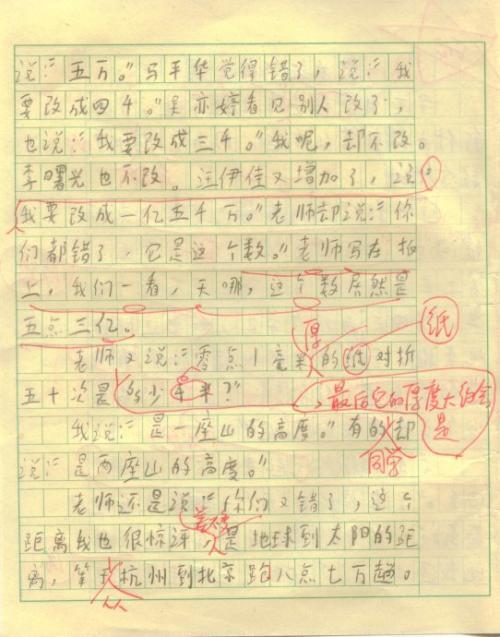 说："五万。"马平华觉得错了，说："我
要改成四千。"吴亦婷看见别人改了，
也说："我要改成三千。"我呢，却不改。
李曙光也不改。汪伊佳又增加了，说：
"我要改成一亿五千万。"老师却说："你
们都错了，它是这个数。"老师写在板
上，我们一看，天哪，这个数居然是
五点三亿。
厚
纸
老师又说："零点1毫米的纸对折
五十次是多少毫米？"
，最后它的厚度大约会
是
我说："是一座山的高度。"有的却
同学
说："是两座山的高度。"
老师还是说："你们又错了，这个
距离我也很惊讶，是地球到太阳的距
离，第杭州到北京跑八点七万趟。
从